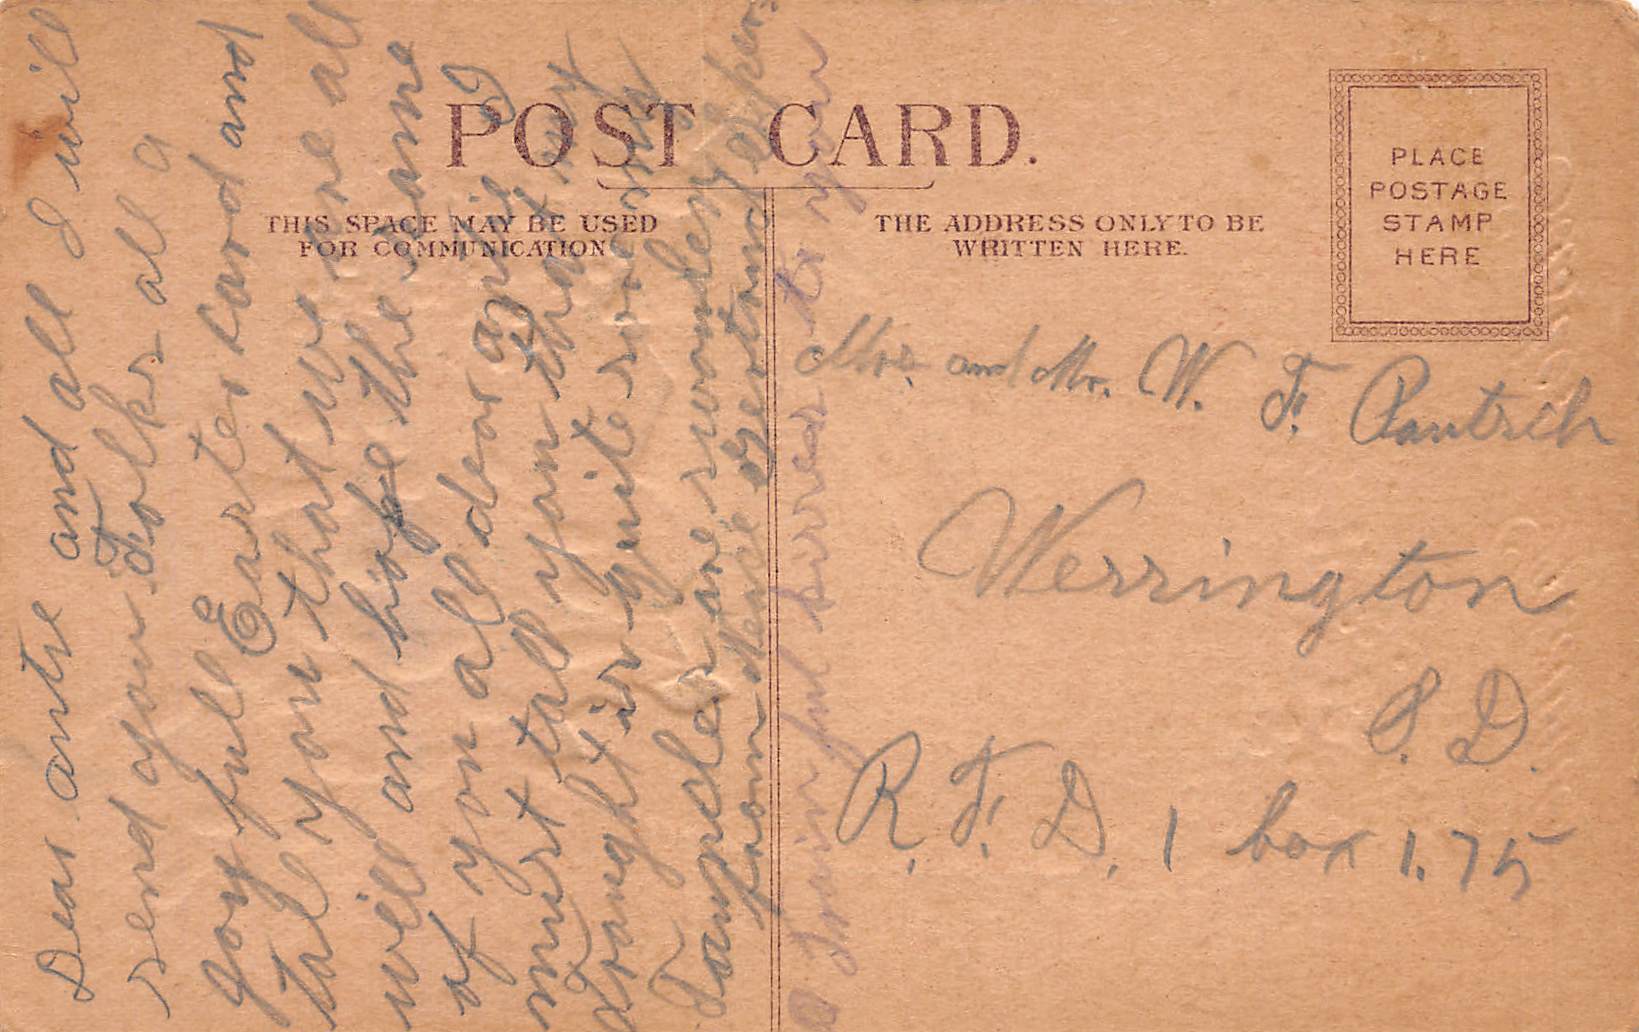 POST CARD.
THIS SPACE MAY BE USED
FOR COMMUNICATION
THE ADDRESS ONLY TO BE
WRITTEN HERE.
PLACE
POSTAGE
STAMP
HERE
Dear ante and all I will
send you Folks all a
joy full Easter card and
tal you that we are all
well and hope the same
of you all dear I
must tall you that my
is quite
are
from
to your
Mrs. and Mr. W. F.
Werrington
S. D.
R. F. D. 1 box 1.75